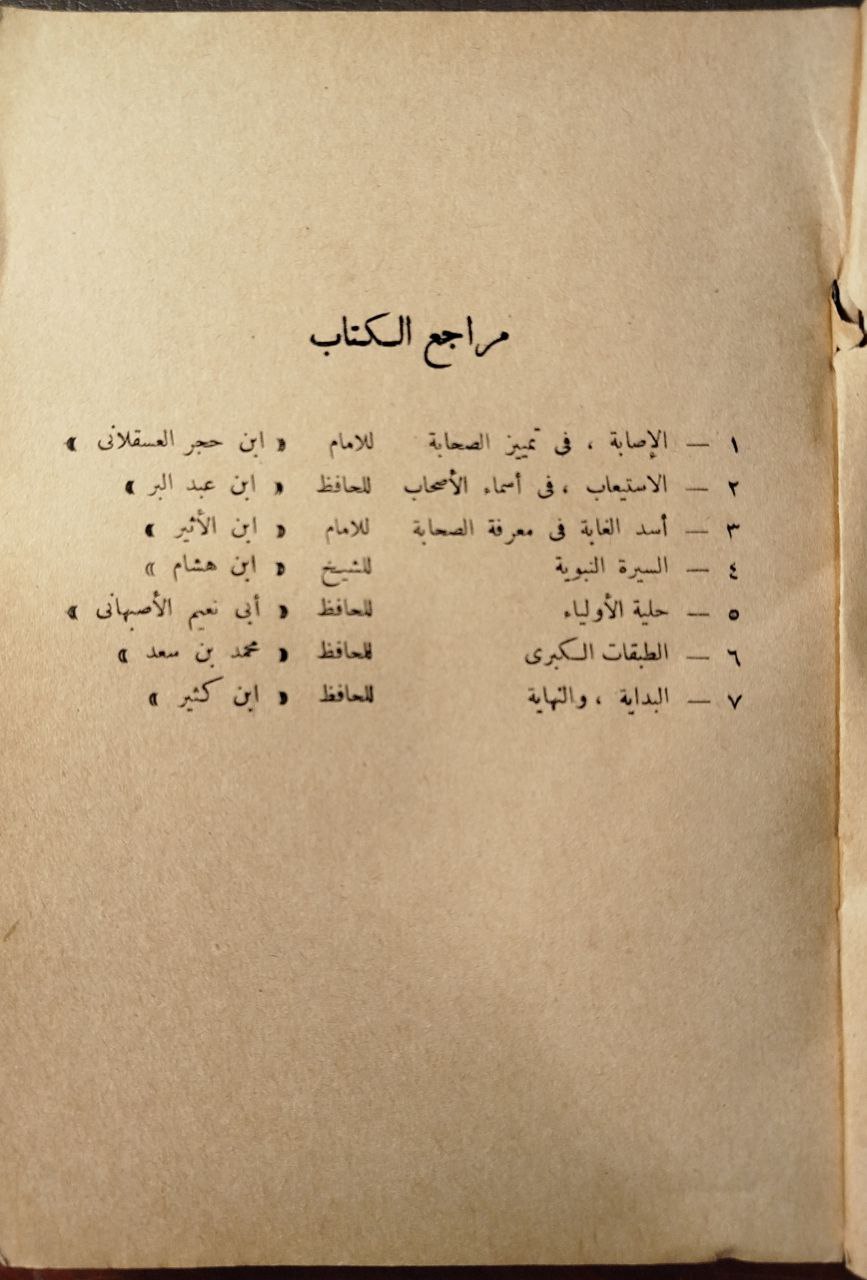 مراجع الكتاب
١ — الإصابة ، فى تمييز الصحابة للامام « ابن حجر العسقلانى »
٢ — الاستيعاب ، فى أسماء الأصحاب للحافظ « ابن عبد البر »
٣ — أسد الغابة فى معرفة الصحابة للامام « ابن الأثير »
٤ — السيرة النبوية للشيخ « ابن هشام »
٥ — حلية الأولياء للحافظ « أبى نعيم الأصبهانى »
٦ — الطبقات الكبرى للحافظ « محمد بن سعد »
٧ — البداية ، والنهاية للحافظ « ابن كثير »